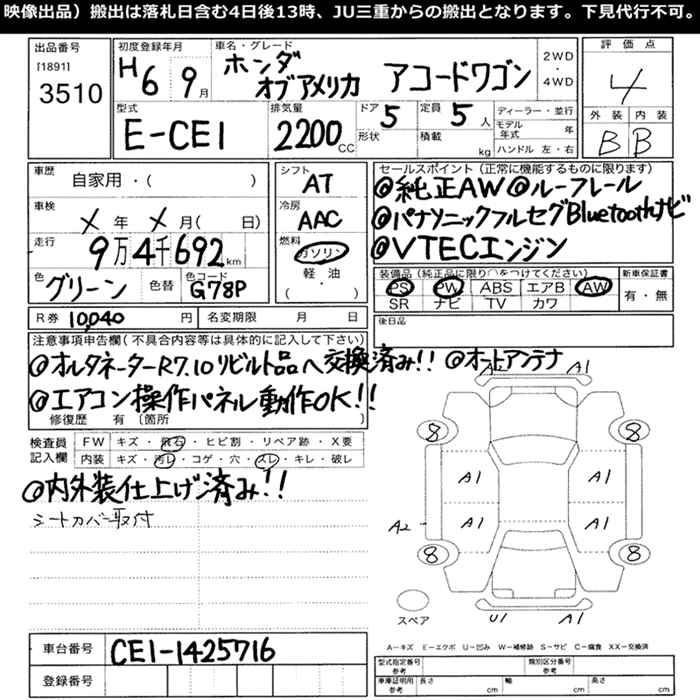 映像出品）搬出は落札日含む4日後13時、JU三重からの搬出となります。下見代行不可。
出品番号
[1891]
3510
初度登録年月
H6 9月
車名・グレード
ホンダ
オブアメリカ アコードワゴン
2WD
・
4WD
評価点
4
外装 内装
B B
型式
E-CE1
排気量
2200CC
ドア 5
形状
定員 5人
積載 kg
ディーラー・並行
モデル年式 年
ハンドル 左・右
車歴
自家用・( )
車検
メ年 メ月( 日)
走行
9万4千692km
色
グリーン
色替
色コード
G78P
シフト
AT
冷房
AAC
燃料
ガソリン
軽・油
・( )
セールスポイント（正常に機能するものに限ります）
@純正AW@ルーフレール
@パナソニックフルセグBluetoothナビ
@VTECエンジン
装備品（純正品に限り○をつけてください）
PS PW ABS エアB AW
SR ナビ TV カワ
新車保証書
有・無
R券 10,040円
名変期限 月 日
後日品
注意事項申告欄(不具合内容等は具体的に記入して下さい)
@オルタネーターR7.10リビルト品へ交換済み!! @オートアンテナ
@エアコン操作パネル動作OK!!
修復歴 有〔箇所 〕
検査員記入欄
FW キズ・飛石・ヒビ割・リペア跡・X要
内装 キズ・汚レ・コゲ・穴・スレ・キレ・破レ
@内外装仕上げ済み!!
シートカバー取付
A1 A1
8 8
A1 A1
A2 A1 A1
8 8
スペア
U1 A1
A−キズ E−エクボ U−凹み W−補修跡 S−サビ C−腐食 XX−交換済
車台番号 CE1-1425716
登録番号
型式指定番号 参考
類別区分番号 参考
車庫証明用 参考
長さ cm 幅 cm 高さ cm